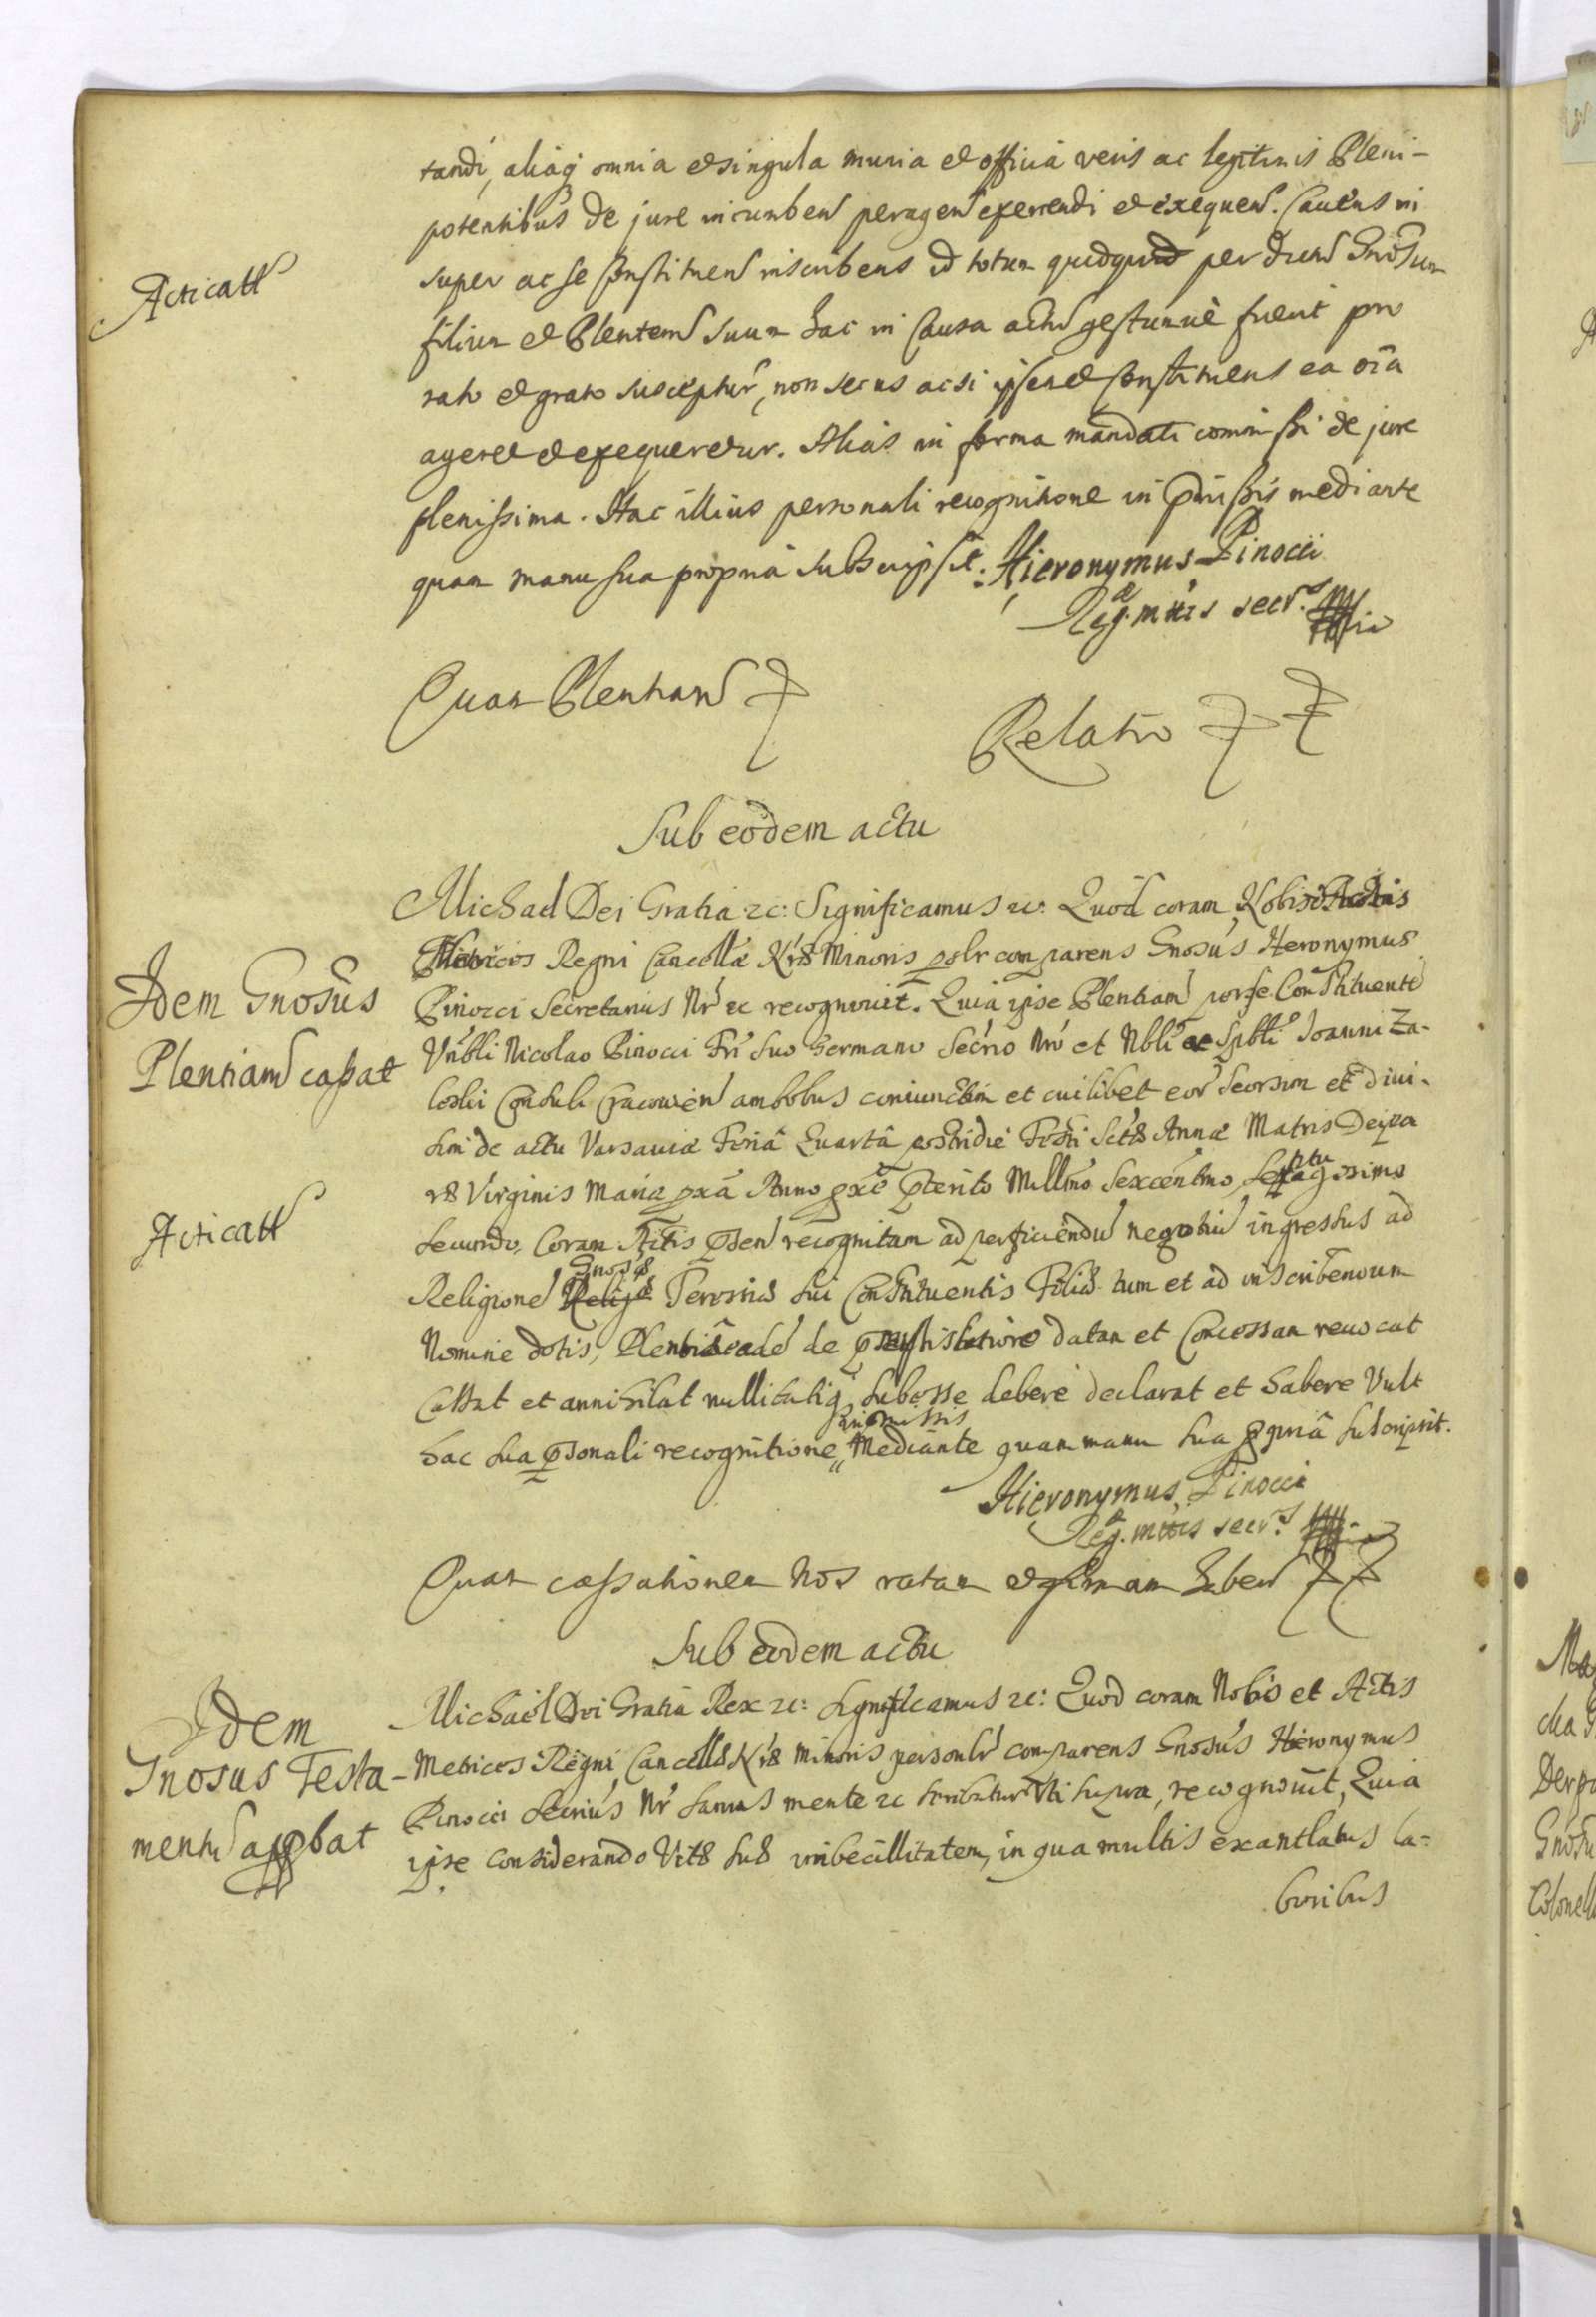 tandi, aliaq omnia et singula munia et officia veris ac legitimis Pleni-
potentibus de jure incumben peragen exercendi et exequen. Cavens in
super ac se Constituen inscribens id totum quidquid per dictu Gnosum
Acticatt
filium et Plentem suum hac in Causa actu gestumve fuerit pro
rato et grato susceptur, non secus ac si ipsemet Constituens ea oia
ageret et exequeretur. Alias in forma mandati commissi de jure
plenissima. Hac illius personali recognitione in pmissis mediante
quam manu sua propria subscripsit. Hieronymus Pinocci
Reg. Mttis secr.s
Quam Plentiam
Relatio
Sub eodem actu
Michael Dei Gratia &c: Significamus &c: Quod coram Nobis et Actis
Metrices Regni Cancellæ Nræ Minoris psolr comparens Gnosus Heronymus
Idem Gnosus
Plentiam cassat
Pinocci Secretarius Nr &c recognovit. Quia ipse Plentiam por se Constituente
Vnbli Nicolao Pinocci Fri suo Germano Secrio Nro et Nbli ac Spbli Joanni Za-
leski Consuli Cracovien ambobus coniunctim et cuilibet eor seorsim et divi-
sim de actu Varsaviæ Feriâ Quartâ postridie Festi Sctæ Annæ Matris Deipa
ræ Virginis Mariæ pxâ Anno pxe pterito Millmo Sexcentmo Septuagesimo
Acticatt
secundo, Coram Actis psen recognitam ad perficiendu negotiu ingressus ad
Religione Gnosæ Teresiæ sui Constituentis Filiæ tum et ad inscribendum
Nomine dotis, Plentiæ eade de datam et Concessam revocat
Cassat et annihilat nullitatiq subesse debere declarat et habere Vult
hac sua psonali recognitione in pmissis Mediante quam manu sua ppriâ subscripsit.
Hieronymus Pinocci
Reg. Mttis secr.s
Quam cassationem Nos ratam et firmam haben
Sub eodem actu
Michaël Dei Gratia Rex &c: Significamus &c: Quod coram Nobis et Actis
Idem
Gnosus Testa-
mentu appbat
Metrices Regni Cancellæ Nræ Minoris personlr comparens Gnosus Hieronymus
Pinocci Secrius Nr sanus mente &c scribatur Vti supra, recognovit, Quia
ipse considerando Vitæ suæ imbecillitatem, in qua multis exantlatis la-
boribus